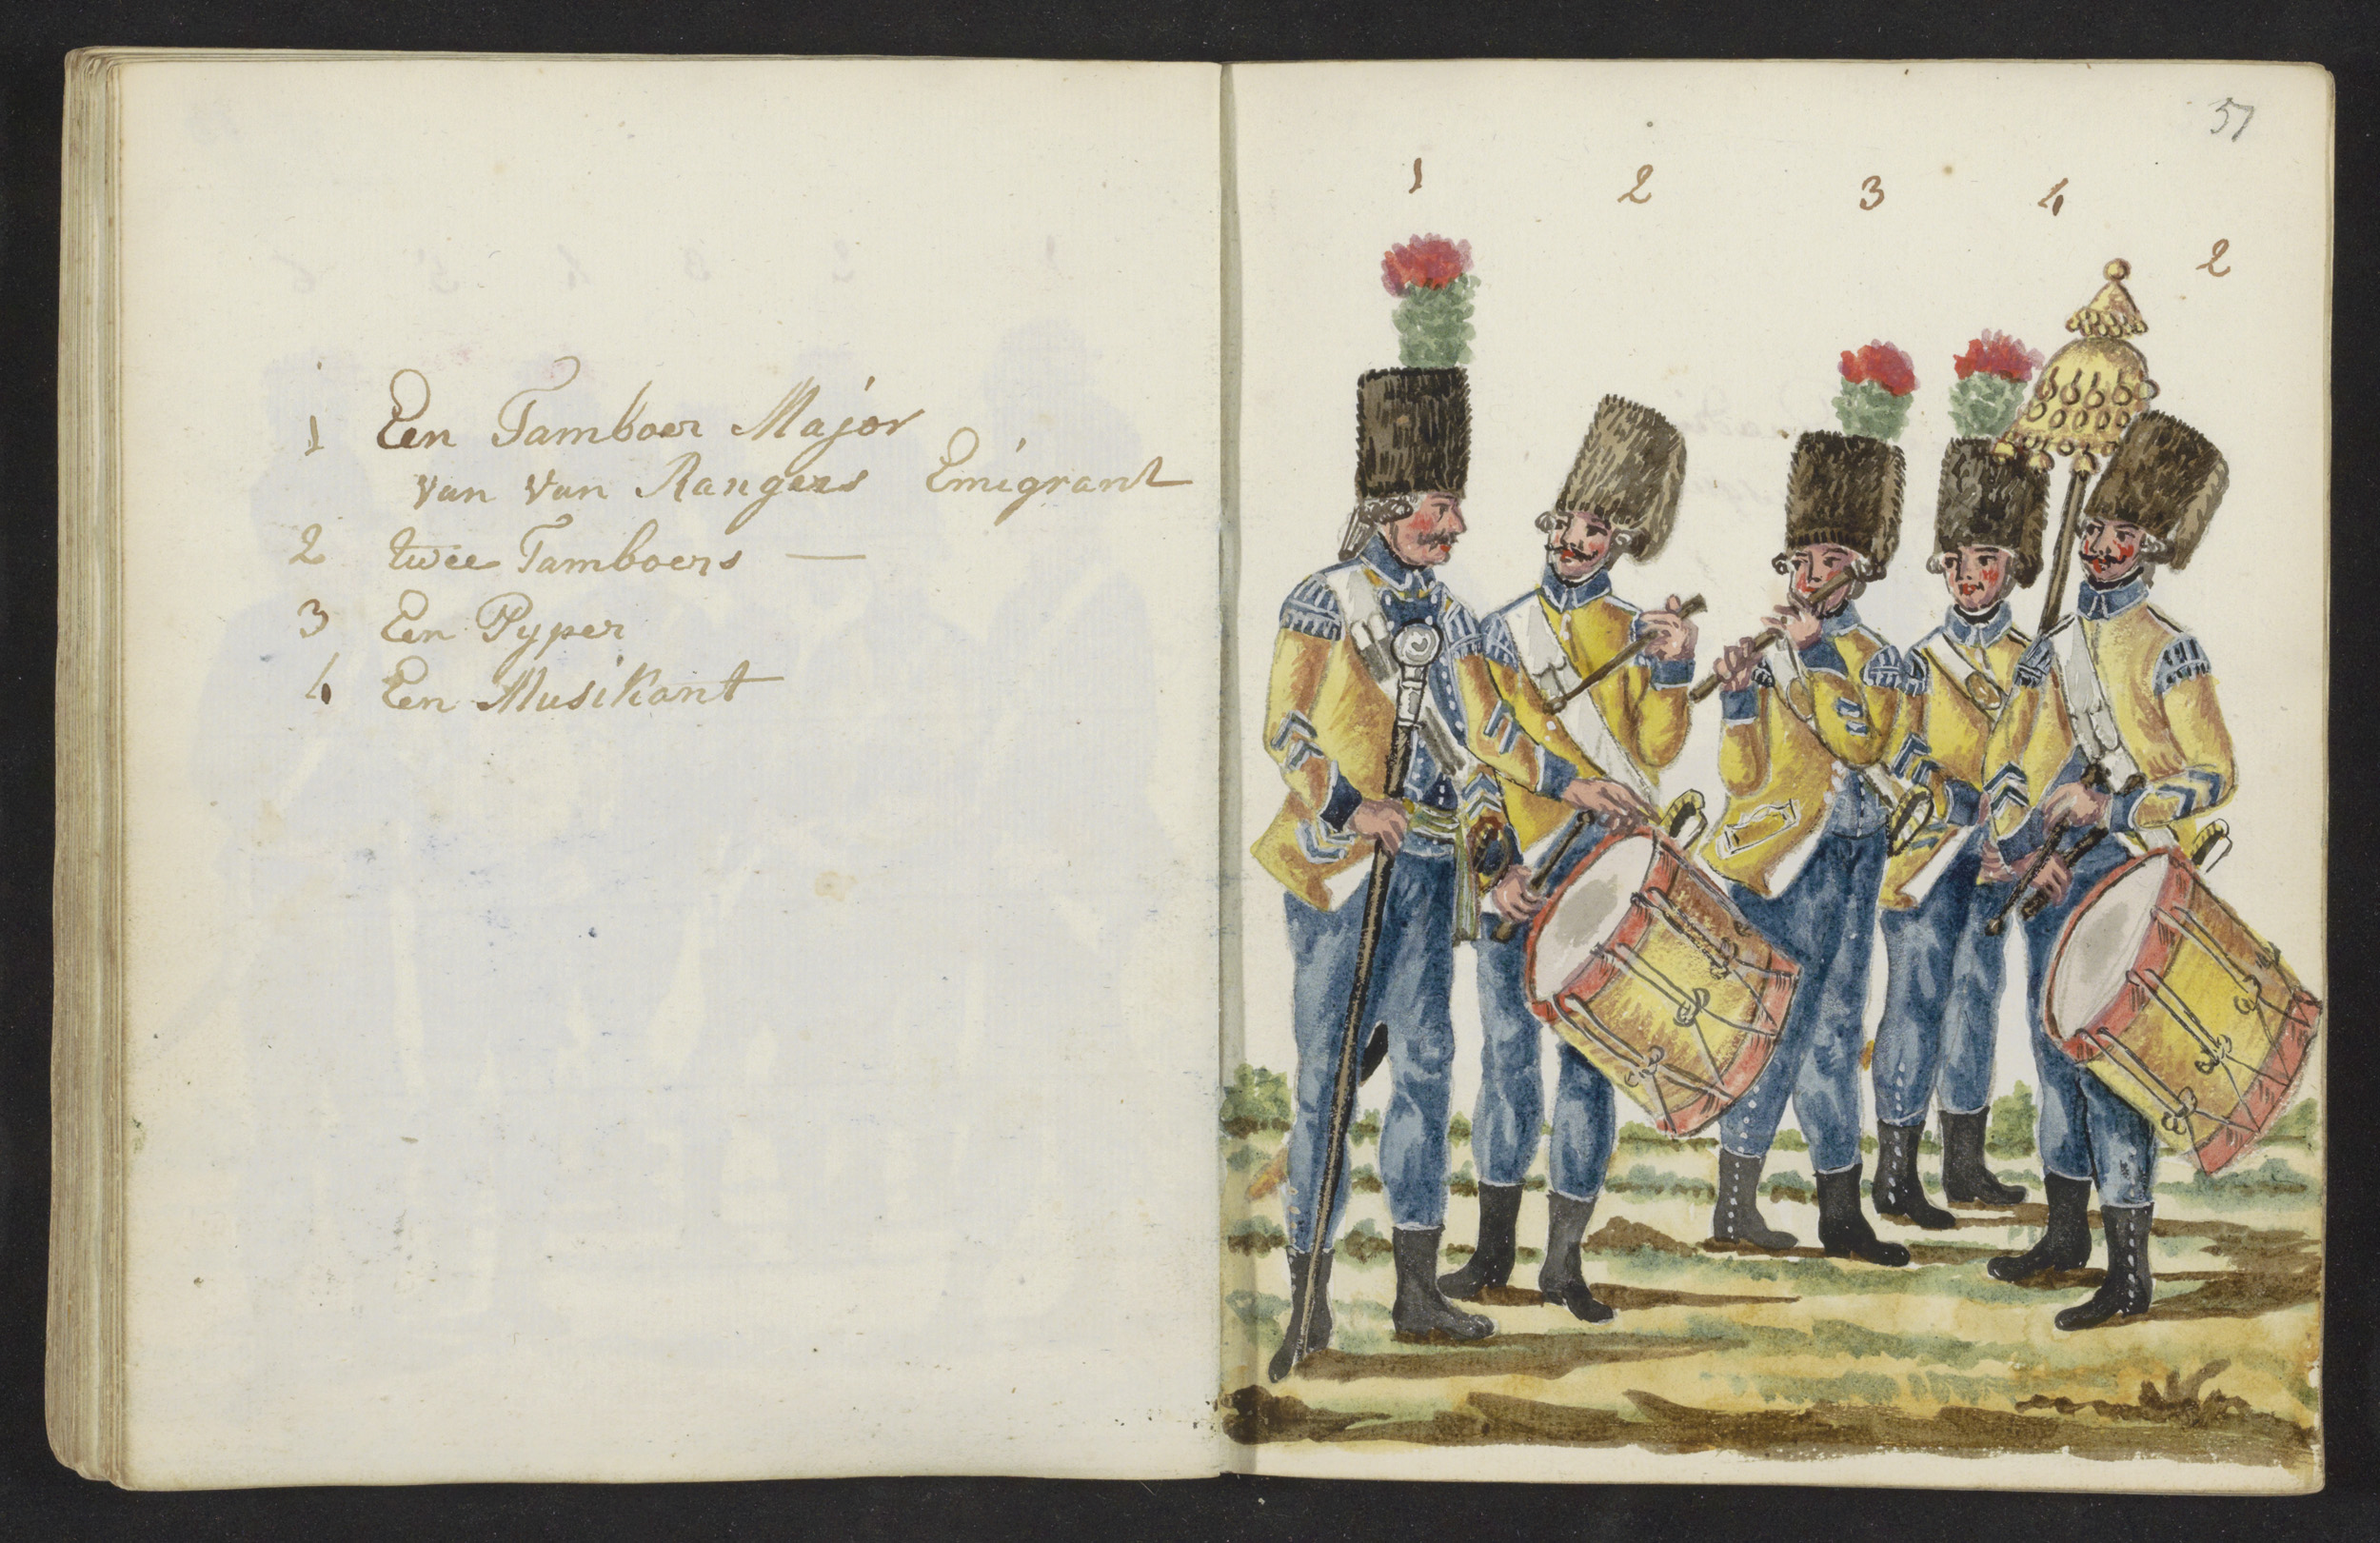 1 Een Tamboer Major
van van Rangers Emigrant
2 twee Tamboers —
3 Een Pyper
4 Een Musikant
51
1 2 3 4
2